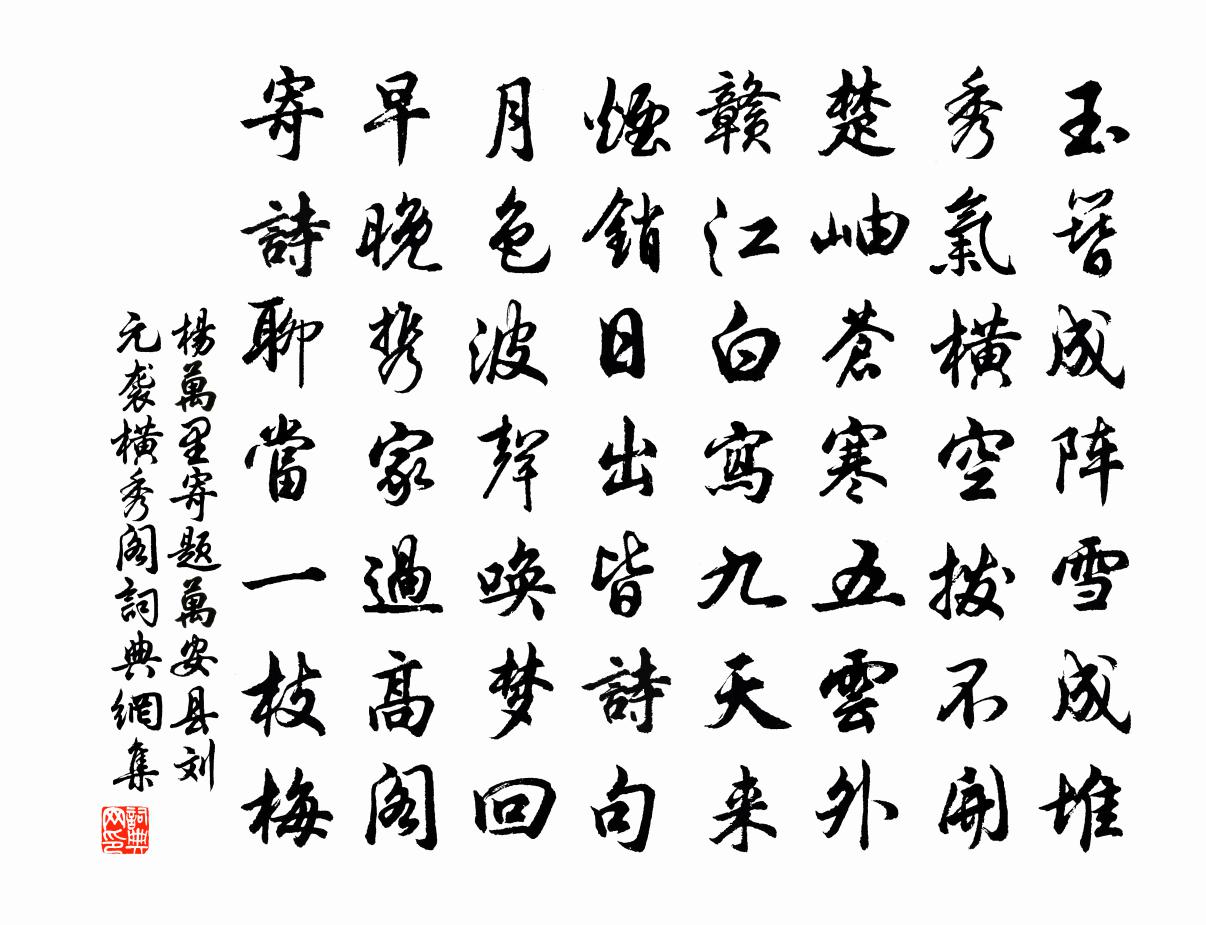 玉簪成阵雪成堆
秀氣橫空拨不開
楚岫蒼寒五雲外
赣江白寫九天来
煙銷日出皆詩句
月色波聲唤梦回
早晚携家過高阁
寄詩聊當一枝梅
楊萬里寄题萬安县刘
元袭橫秀阁詞典網集
詞典网印